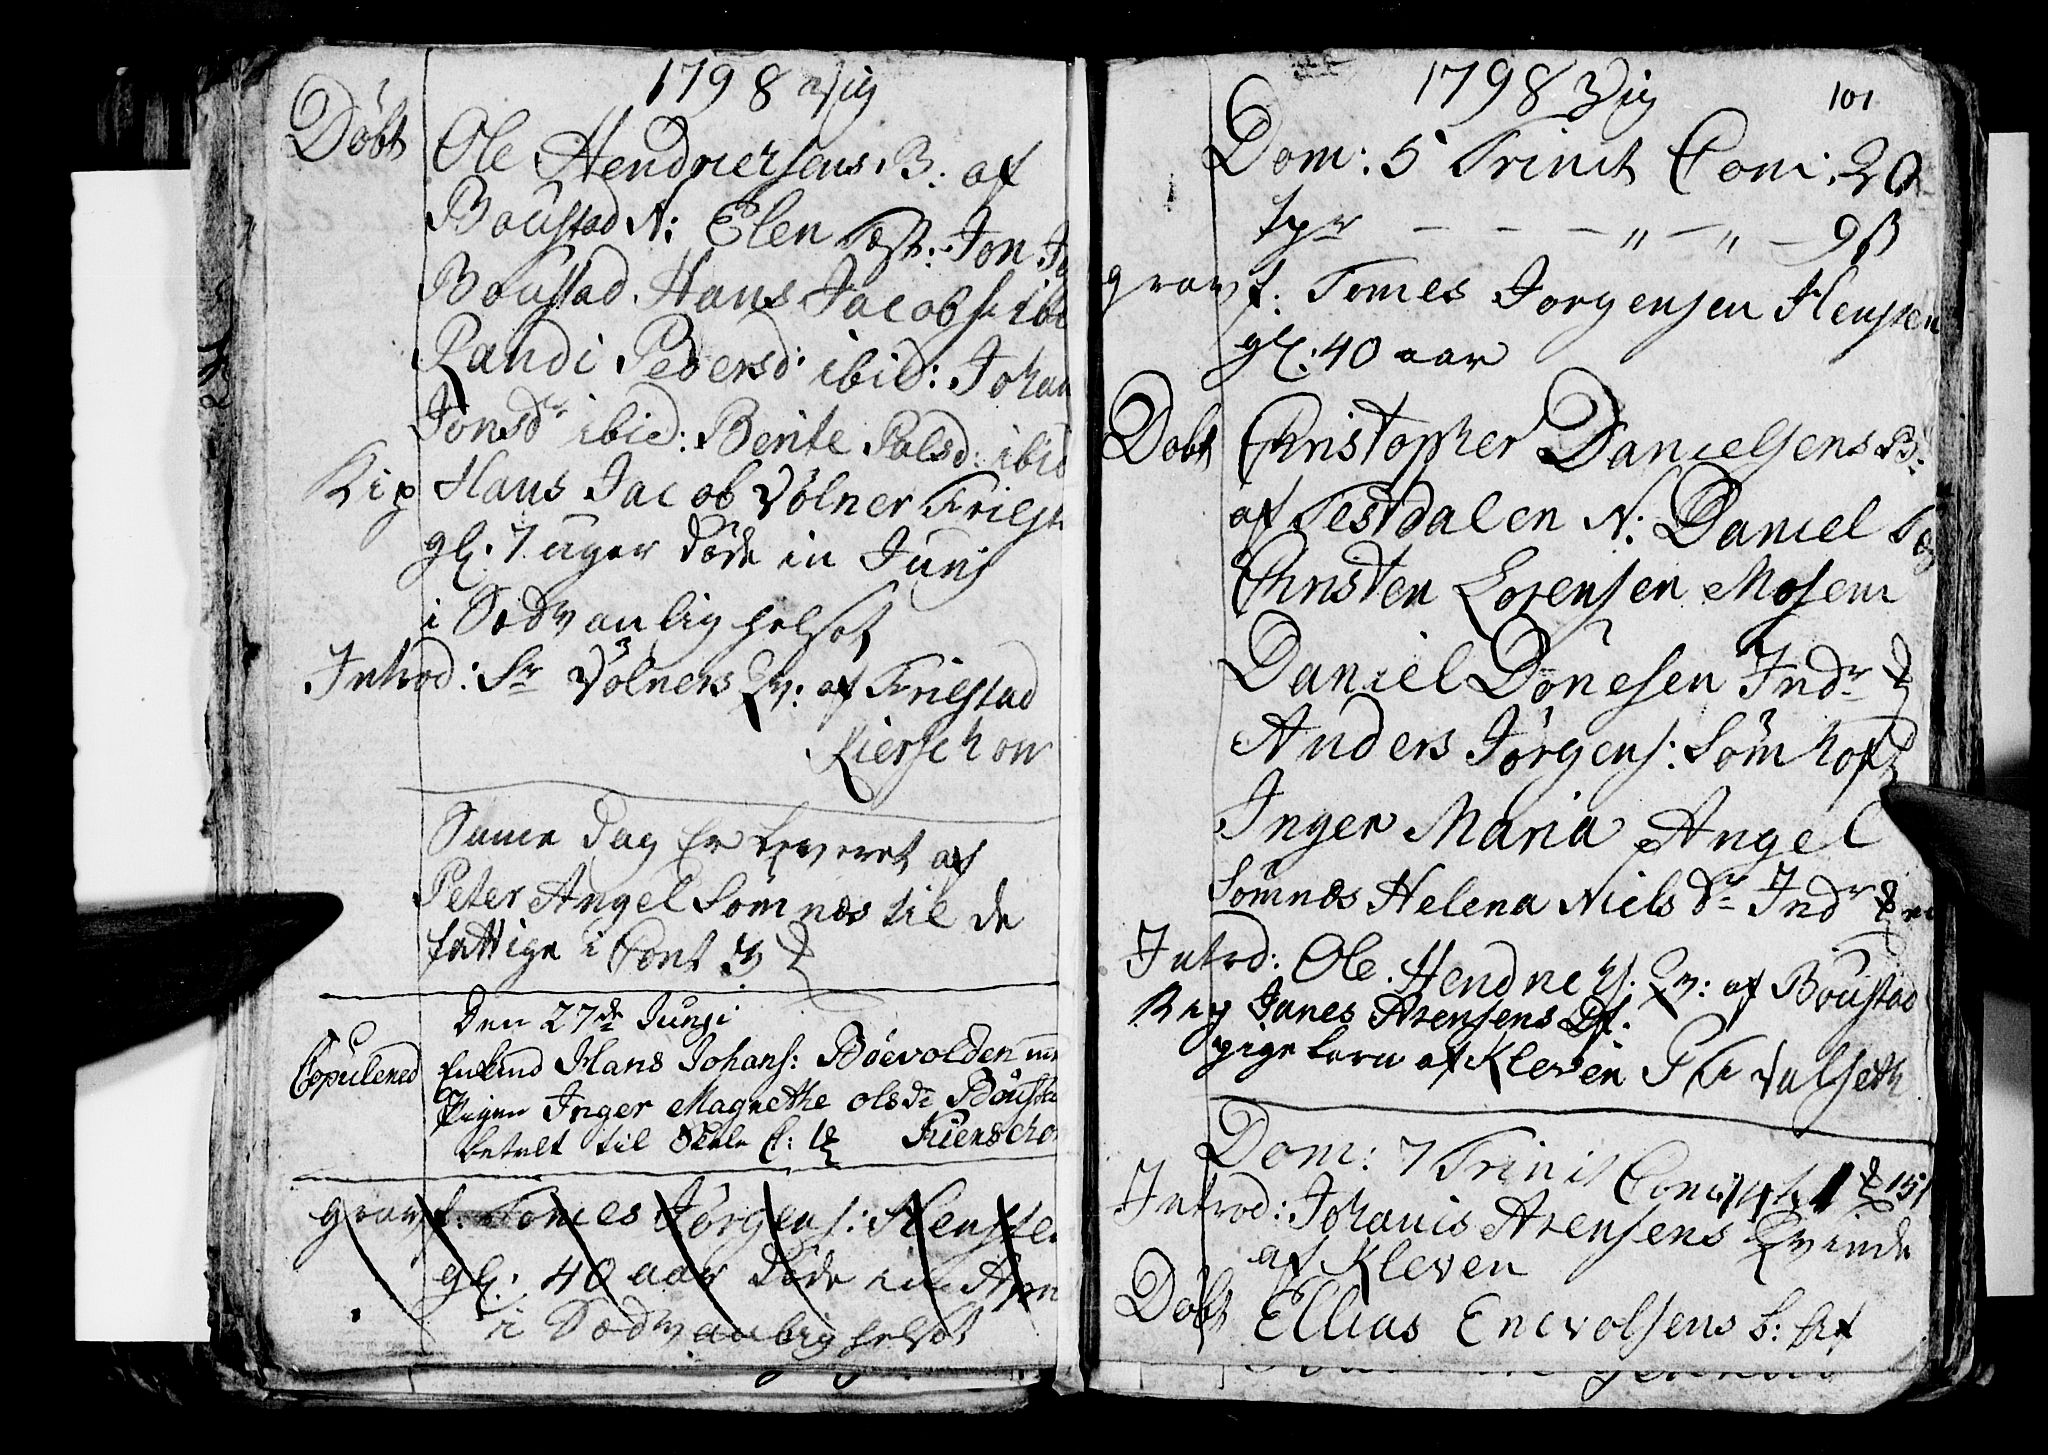 1798 Vig
Døbt Ole Hendrichsens B: af
Boustad N: Elen Test: Jon
Boustad Hans Jacobs: ibd
Randi Pedersd: ibid: Johan
Jonsdr ibid: Bente Palsd: ibid
Hans Jacob Völner Trilst
gl: 7 uger døde in Junj
i Sædvanlig helsot
Introd: Sr Völners Qv: af Trilstad
Kierschow
Same Dag er leveret af
Peter Angel Sømnæs til de
fattige i Cont 3
Den 27de Junji
Copulered Enkmd Hans Johans: Bøevolden
Pigen Inger Magrethe olsdr Boust
betalt til Skole C: 12 Kierscho
grav f. Tomes Jørgens: Henste
gl: 40 aar døde in Apr
i Sædvanlig helsot
1798 Vig 101
Dom: 5 Trinit Com: 20
tpr — — — „ — „ — 9 ß
grav f. Tomes Jorgensen Hensten
gl: 40 aar
Døbt Christopher Danielsens B:
af Testdalen N: Daniel
Christen Lorensen Mosem
Daniel Dønesen Indr
Anders Jørgens: Sømhof
Inger Maria Angel
Sømnæs Helena Nielsdr Indr
Introd: Ole Hendrichs: Qv: af Boustad
Janes Arensens Df.
pige barn af Kleven Valseth
Dom: 7 Trinit Com: 14
Introd: Johanis Arensens Qvinde
af Kleven
Døbt Ellias Encvolsens b: af